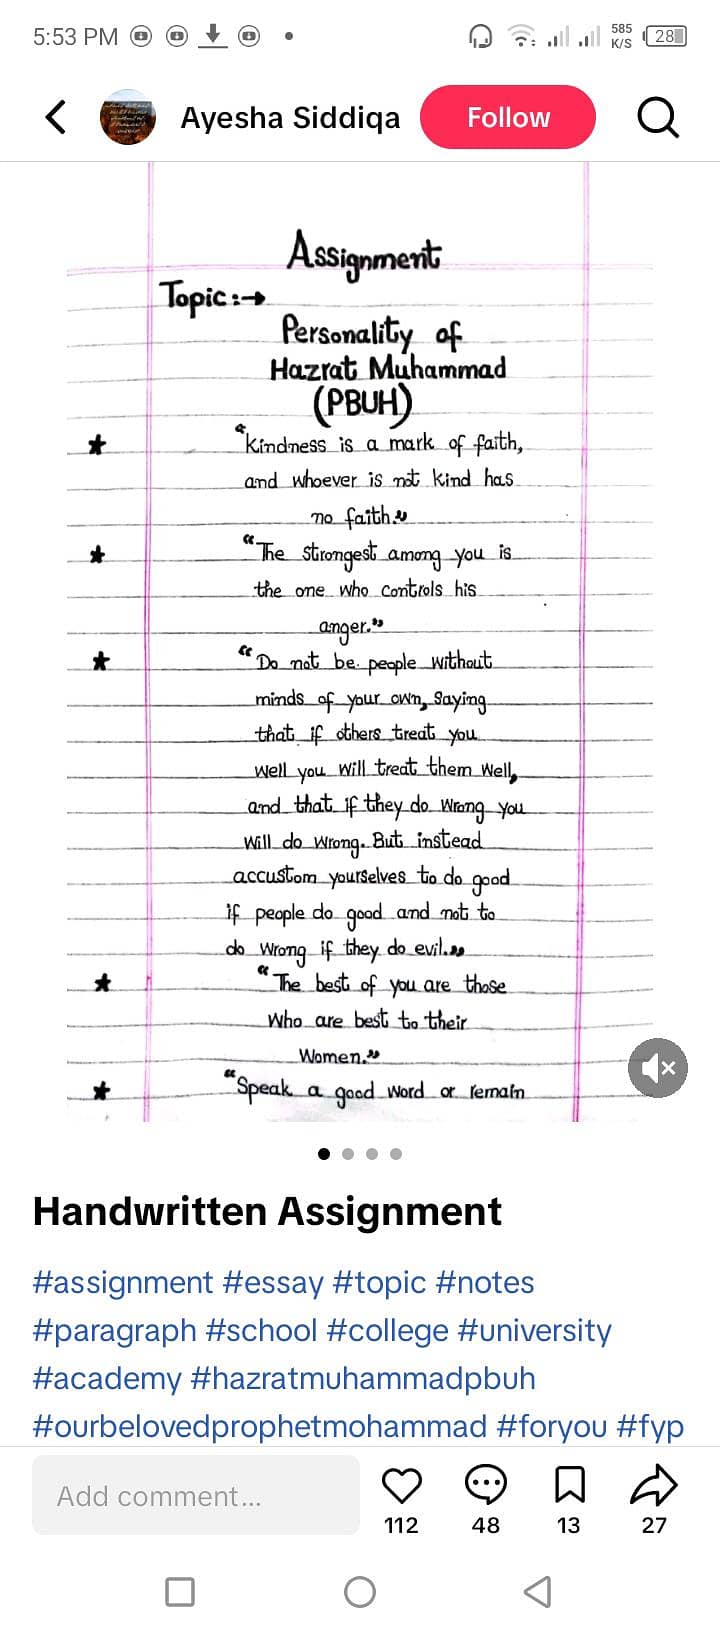 5:53 PM
585 K/S
28
Ayesha Siddiqa
Follow
Assignment
Topic:→
Personality of
Hazrat Muhammad
(PBUH)
★ "Kindness is a mark of faith,
and whoever is not kind has
no faith."
★ "The Strongest among you is
the one who controls his
anger."
★ "Do not be people without
minds of your own, Saying
that if others treat you
well you will treat them well,
and that if they do wrong you
will do wrong. But instead
accustom yourselves to do good
if people do good and not to
do wrong if they do evil."
★ "The best of you are those
who are best to their
Women."
★ "Speak a good word or remain
Handwritten Assignment
#assignment #essay #topic #notes
#paragraph #school #college #university
#academy #hazratmuhammadpbuh
#ourbelovedprophetmohammad #foryou #fyp
Add comment...
112
48
13
27